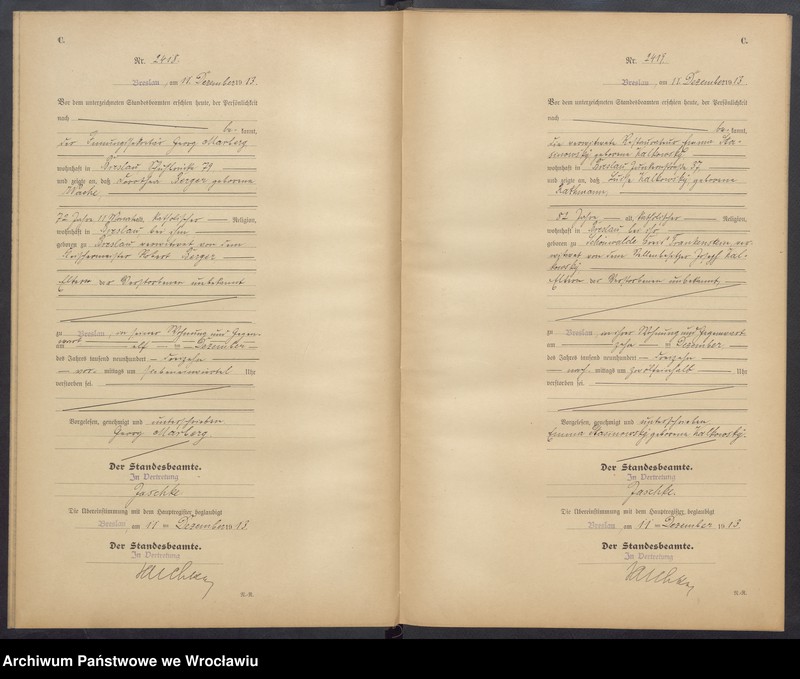 C.
Nr. 2418.
Breslau, am 11. Dezember 1913.
Vor dem unterzeichneten Standesbeamten erschien heute, der Persönlichkeit
nach
be-kannt,
der Georg Marberg
wohnhaft in Breslau 79
und zeigte an, daß Dorothea Berger geborene
72 Jahre 11 Monate alt, katholischer Religion,
wohnhaft in Breslau bei ihm
geboren zu Breslau verwitwet von dem
Robert Berger
Eltern der Verstorbenen unbekannt
zu Breslau, in seiner Wohnung und Gegen-
wart
am elf ten Dezember
des Jahres tausend neunhundert dreizehn
vor mittags um siebeneinviertel Uhr
verstorben sei.
Vorgelesen, genehmigt und unterschrieben
Georg Marberg
Der Standesbeamte.
In Vertretung
Jaschke
Die Übereinstimmung mit dem Hauptregister beglaubigt
Breslau, am 11 ten Dezember 1913.
Der Standesbeamte.
In Vertretung
Jaschke
R.-R.
C.
Nr. 2419
Breslau, am 11. Dezember 1913
Vor dem unterzeichneten Standesbeamten erschien heute, der Persönlichkeit
nach
be-kannt,
die verwitwete Emma Sta-
sinowsky geborene Zalkowsky
wohnhaft in Breslau 37
und zeigte an, daß Zalkowsky, geborene
Rathmann,
82 Jahre alt, katholischer Religion,
wohnhaft in Breslau bei ihr
geboren zu Schönwalde Kreis Frankenstein ver-
witwet von dem Stellenbesitzer Joseph Zal-
kowsky
Eltern der Verstorbenen unbekannt,
zu Breslau, in ihrer Wohnung und Gegenwart
am zehn ten Dezember
des Jahres tausend neunhundert dreizehn
nach mittags um Uhr
verstorben sei.
Vorgelesen, genehmigt und unterschrieben
Emma Stasinowsky, geborene Zalkowsky.
Der Standesbeamte.
In Vertretung
Jaschke.
Die Übereinstimmung mit dem Hauptregister beglaubigt
Breslau, am 11 ten Dezember 1913
Der Standesbeamte.
In Vertretung
Jaschke
R.-R.
Archiwum Państwowe we Wrocławiu